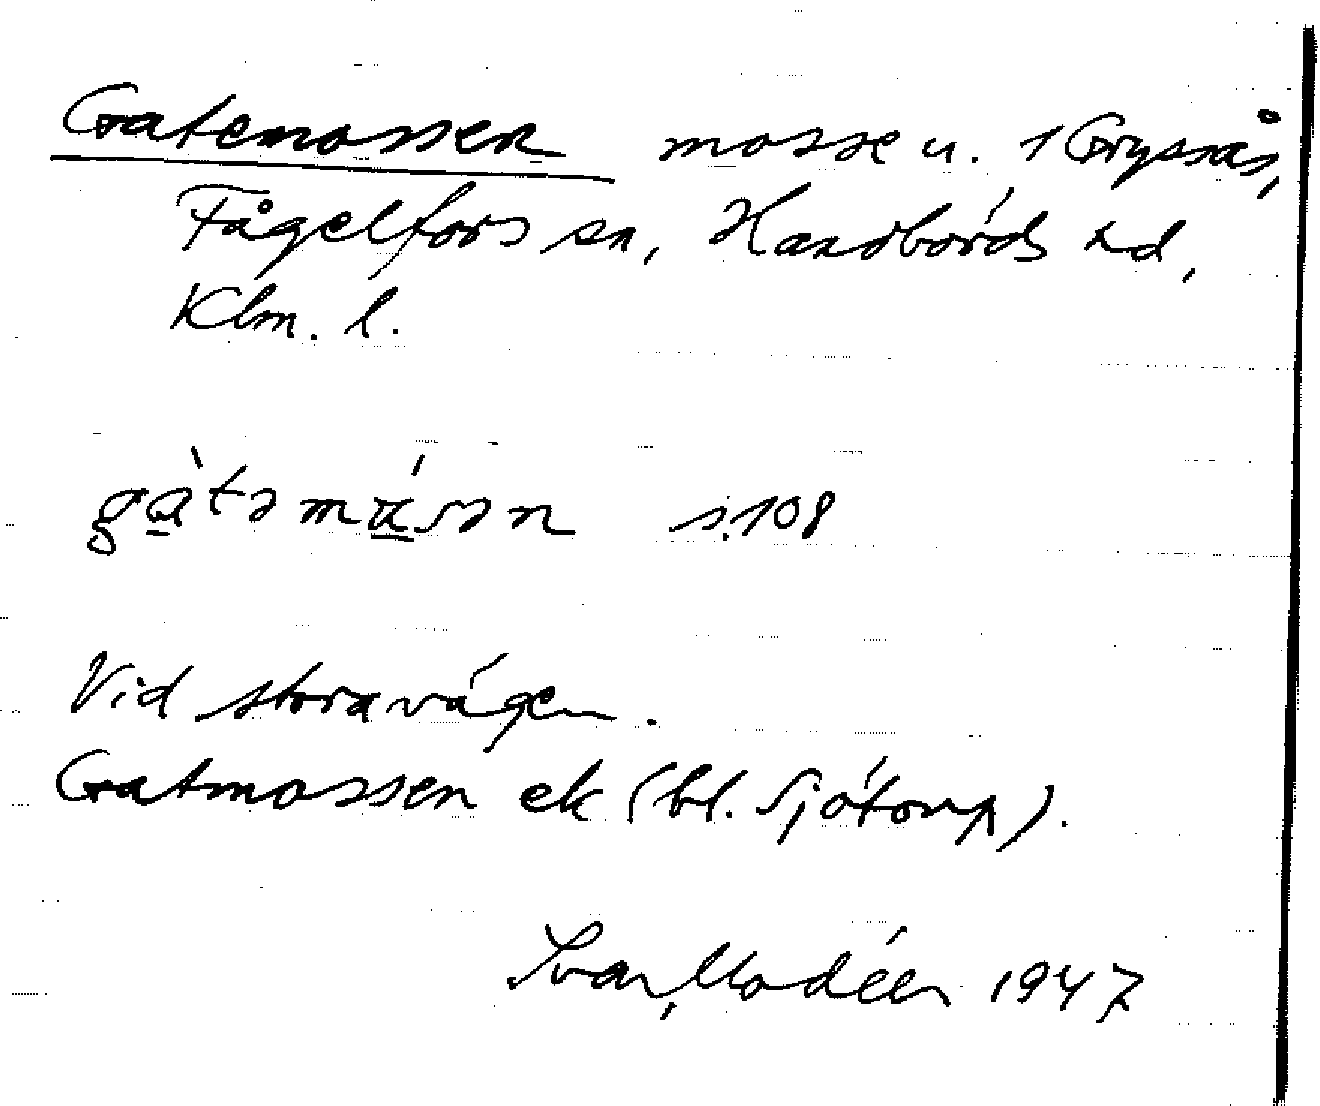 Gatemossen mosse u. 1 Gryssås,
Fågelfors sn, Handbörds hd,
Klm. l.
gàtəmásən s.108
Vid storavägen.
Gatmossen ek (bl. Sjötorp).
Ivar Modéer 1947